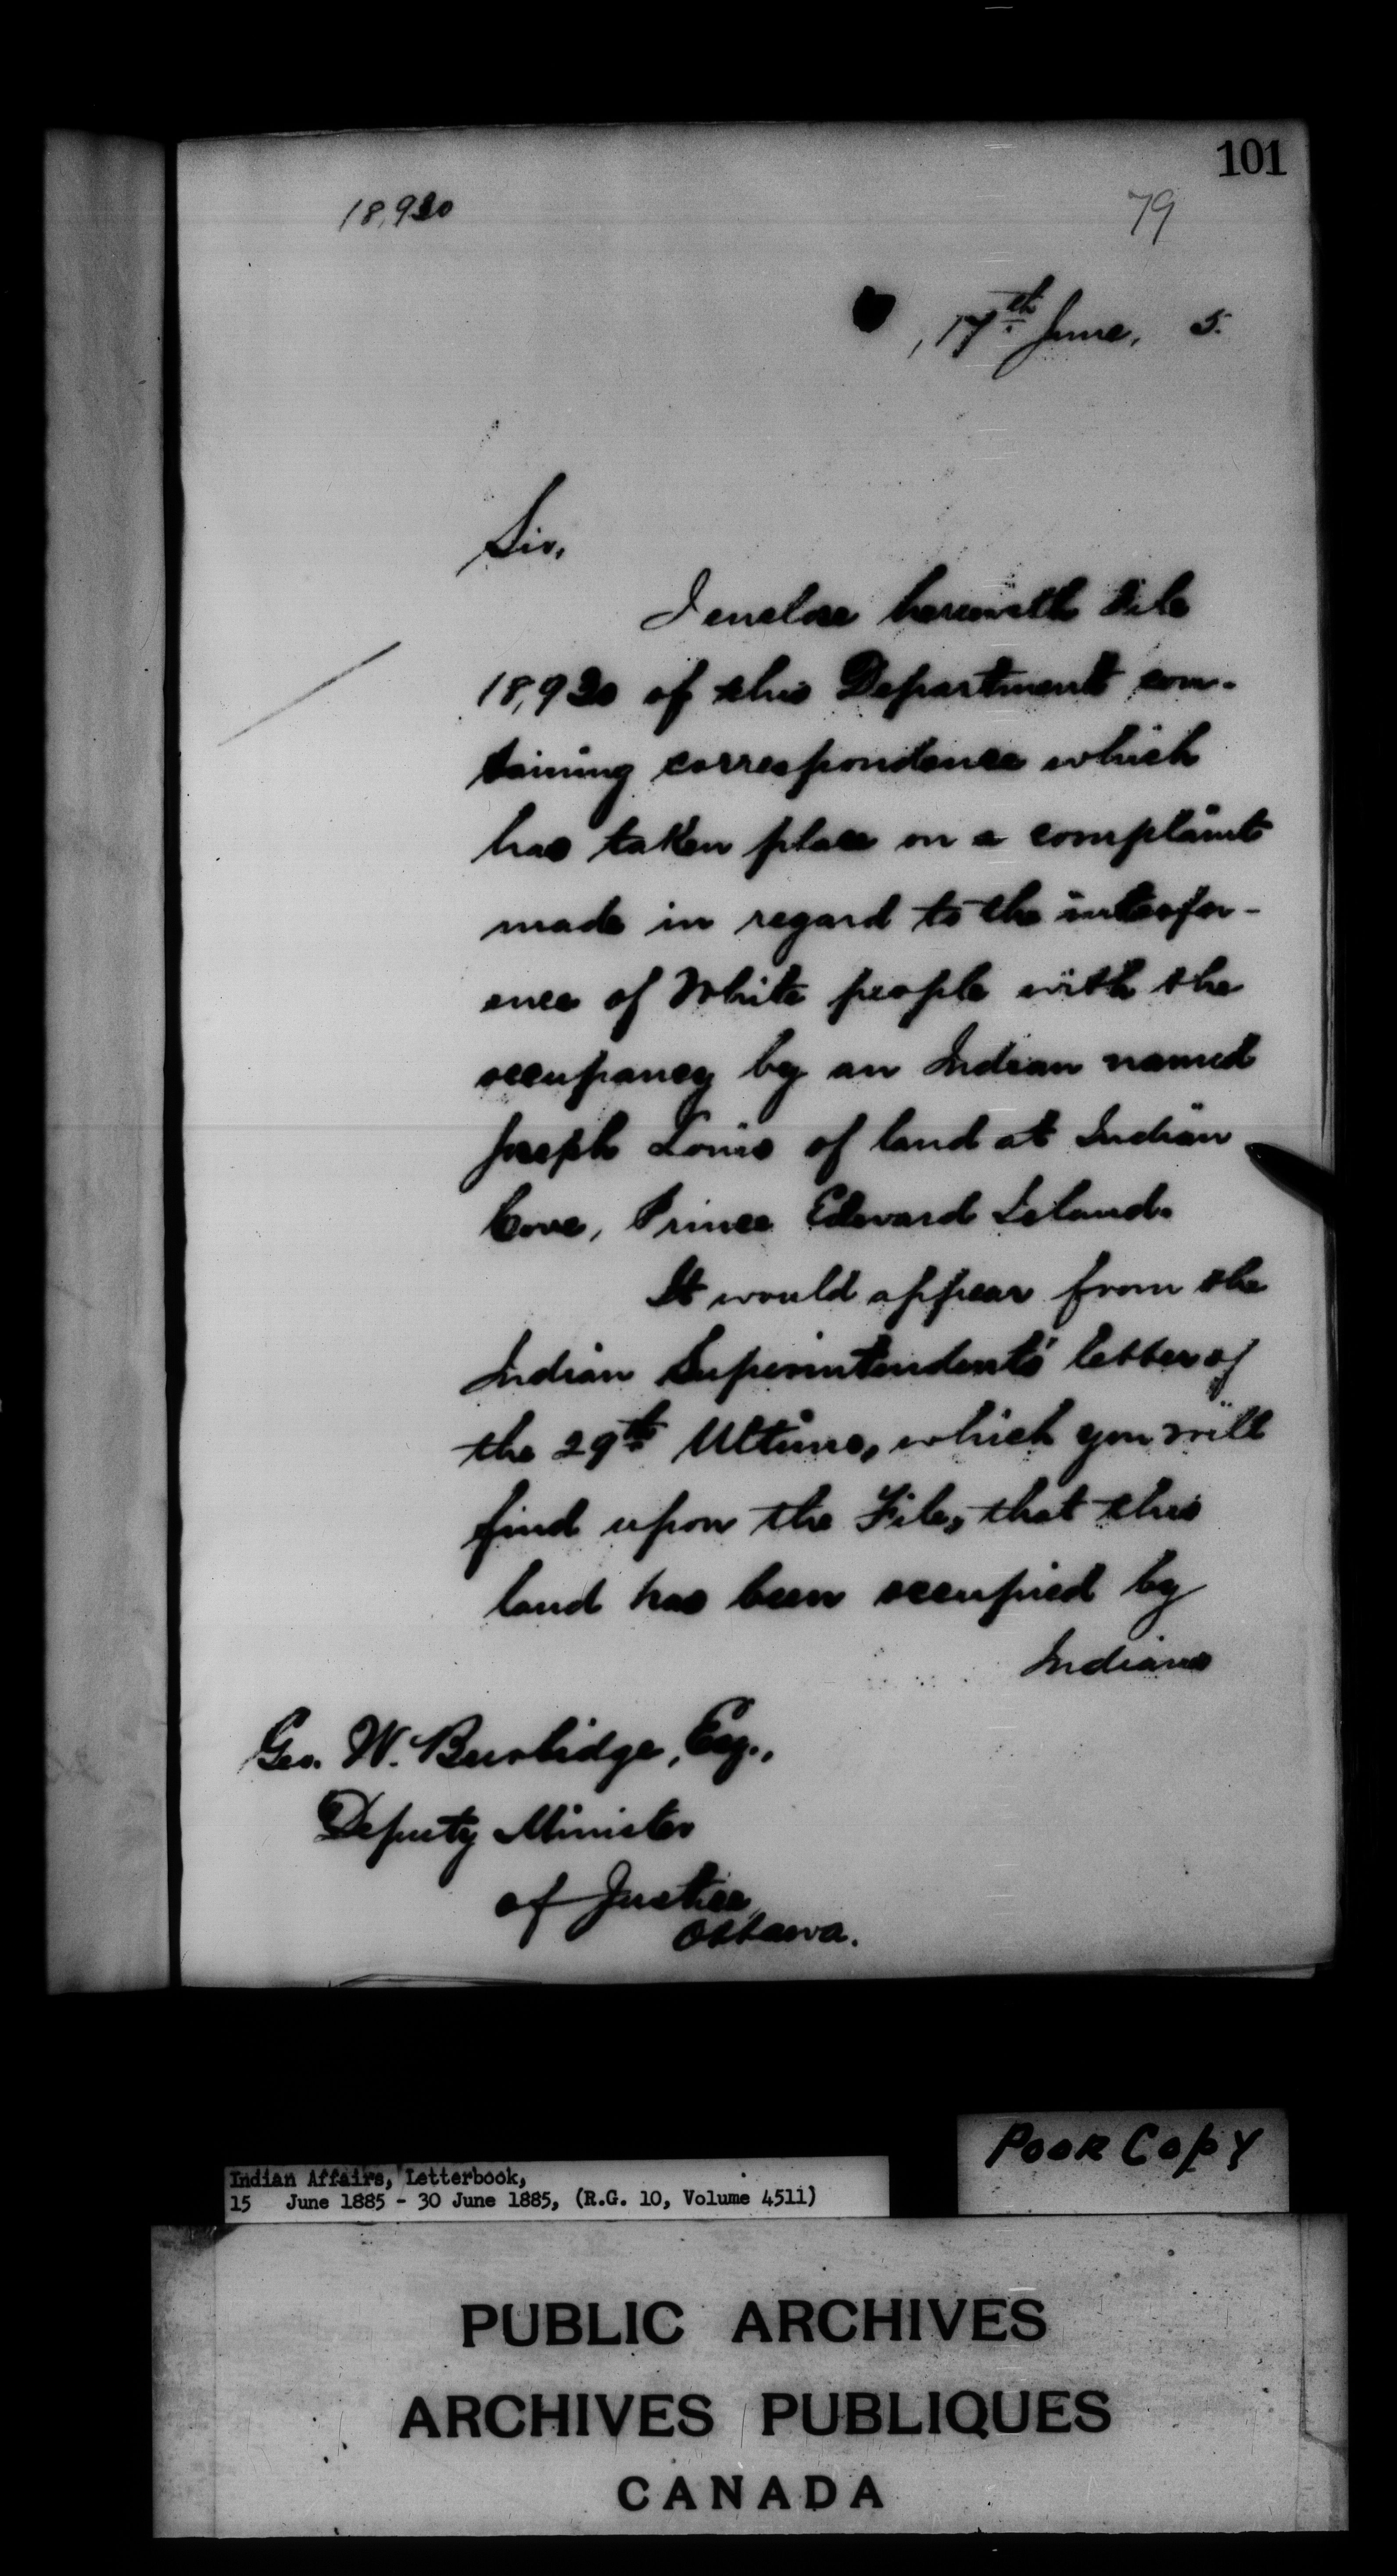 101
18,920
79
, 17th June, 5.
Sir,
I enclose herewith File
18,920 of this Department con-
taining correspondence which
has taken place on a complaint
made in regard to the interfer-
ence of White people with the
occupancy by an Indian named
Joseph Louis of land at Indian
Cove, Prince Edward Island.
It would appear from the
Indian Superintendent's letter of
the 29th Ultimo, which you will
find upon the File, that this
land has been occupied by
Indians
Geo. W. Burbidge, Esq.,
Deputy Minister
of Justice,
Ottawa.
Poor Copy
Indian Affairs, Letterbook,
15 June 1885 - 30 June 1885, (R.G. 10, Volume 4511)
PUBLIC ARCHIVES
ARCHIVES PUBLIQUES
CANADA